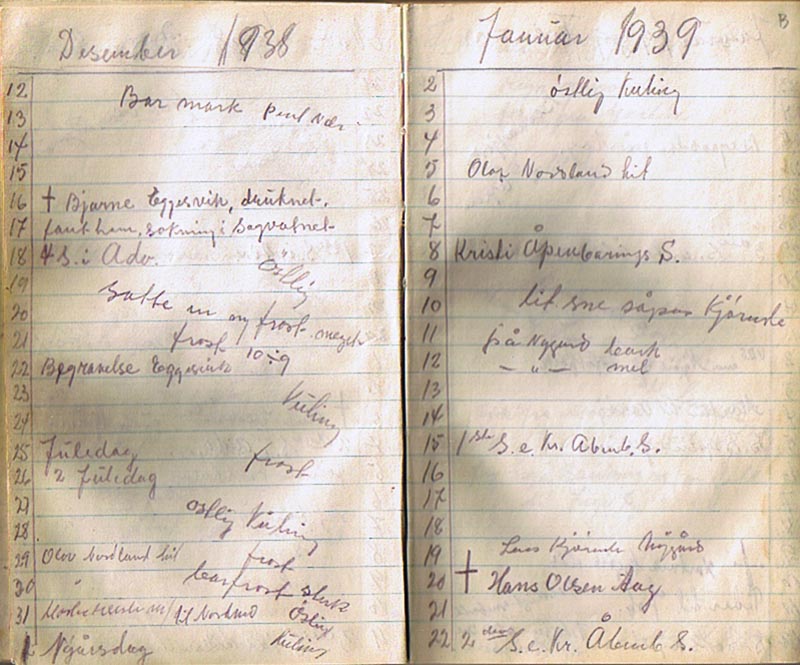 Desember 1938
12
Bar mark pent Vær.
13
14
15
16 † Bjarne Eggesvik, druknet.
17 fant ham, sokning i Sagvatnet
18 4 S. i Adv. Östlig
19
20 Satte in ny frost meget
21 frost
22 Begravelse Eggesvik 10÷9
23
Kuling
24
25 Juledag frost
26 2 Juledag
27
östlig Kuling
28
29 Olav Nordland hit frost
30 " barfrost sterk
31 til Nordland Östlig
1 Nyårsdag Kuling
Januar 1939
B
2 östlig Kuling
3
4
5 Olav Nordland hit
6
7
8 Kristi Åpenbarings S.
9
10 lit sne såpas Kjörende
11 från Nygård
12 — " — mel
13
14
15 1ste S. e Kr. Åbenb. S.
16
17
18
19 Lass Kjörende
20 † Hans Olsen Aag
21
22 2den S. e. Kr. Åbenb S.